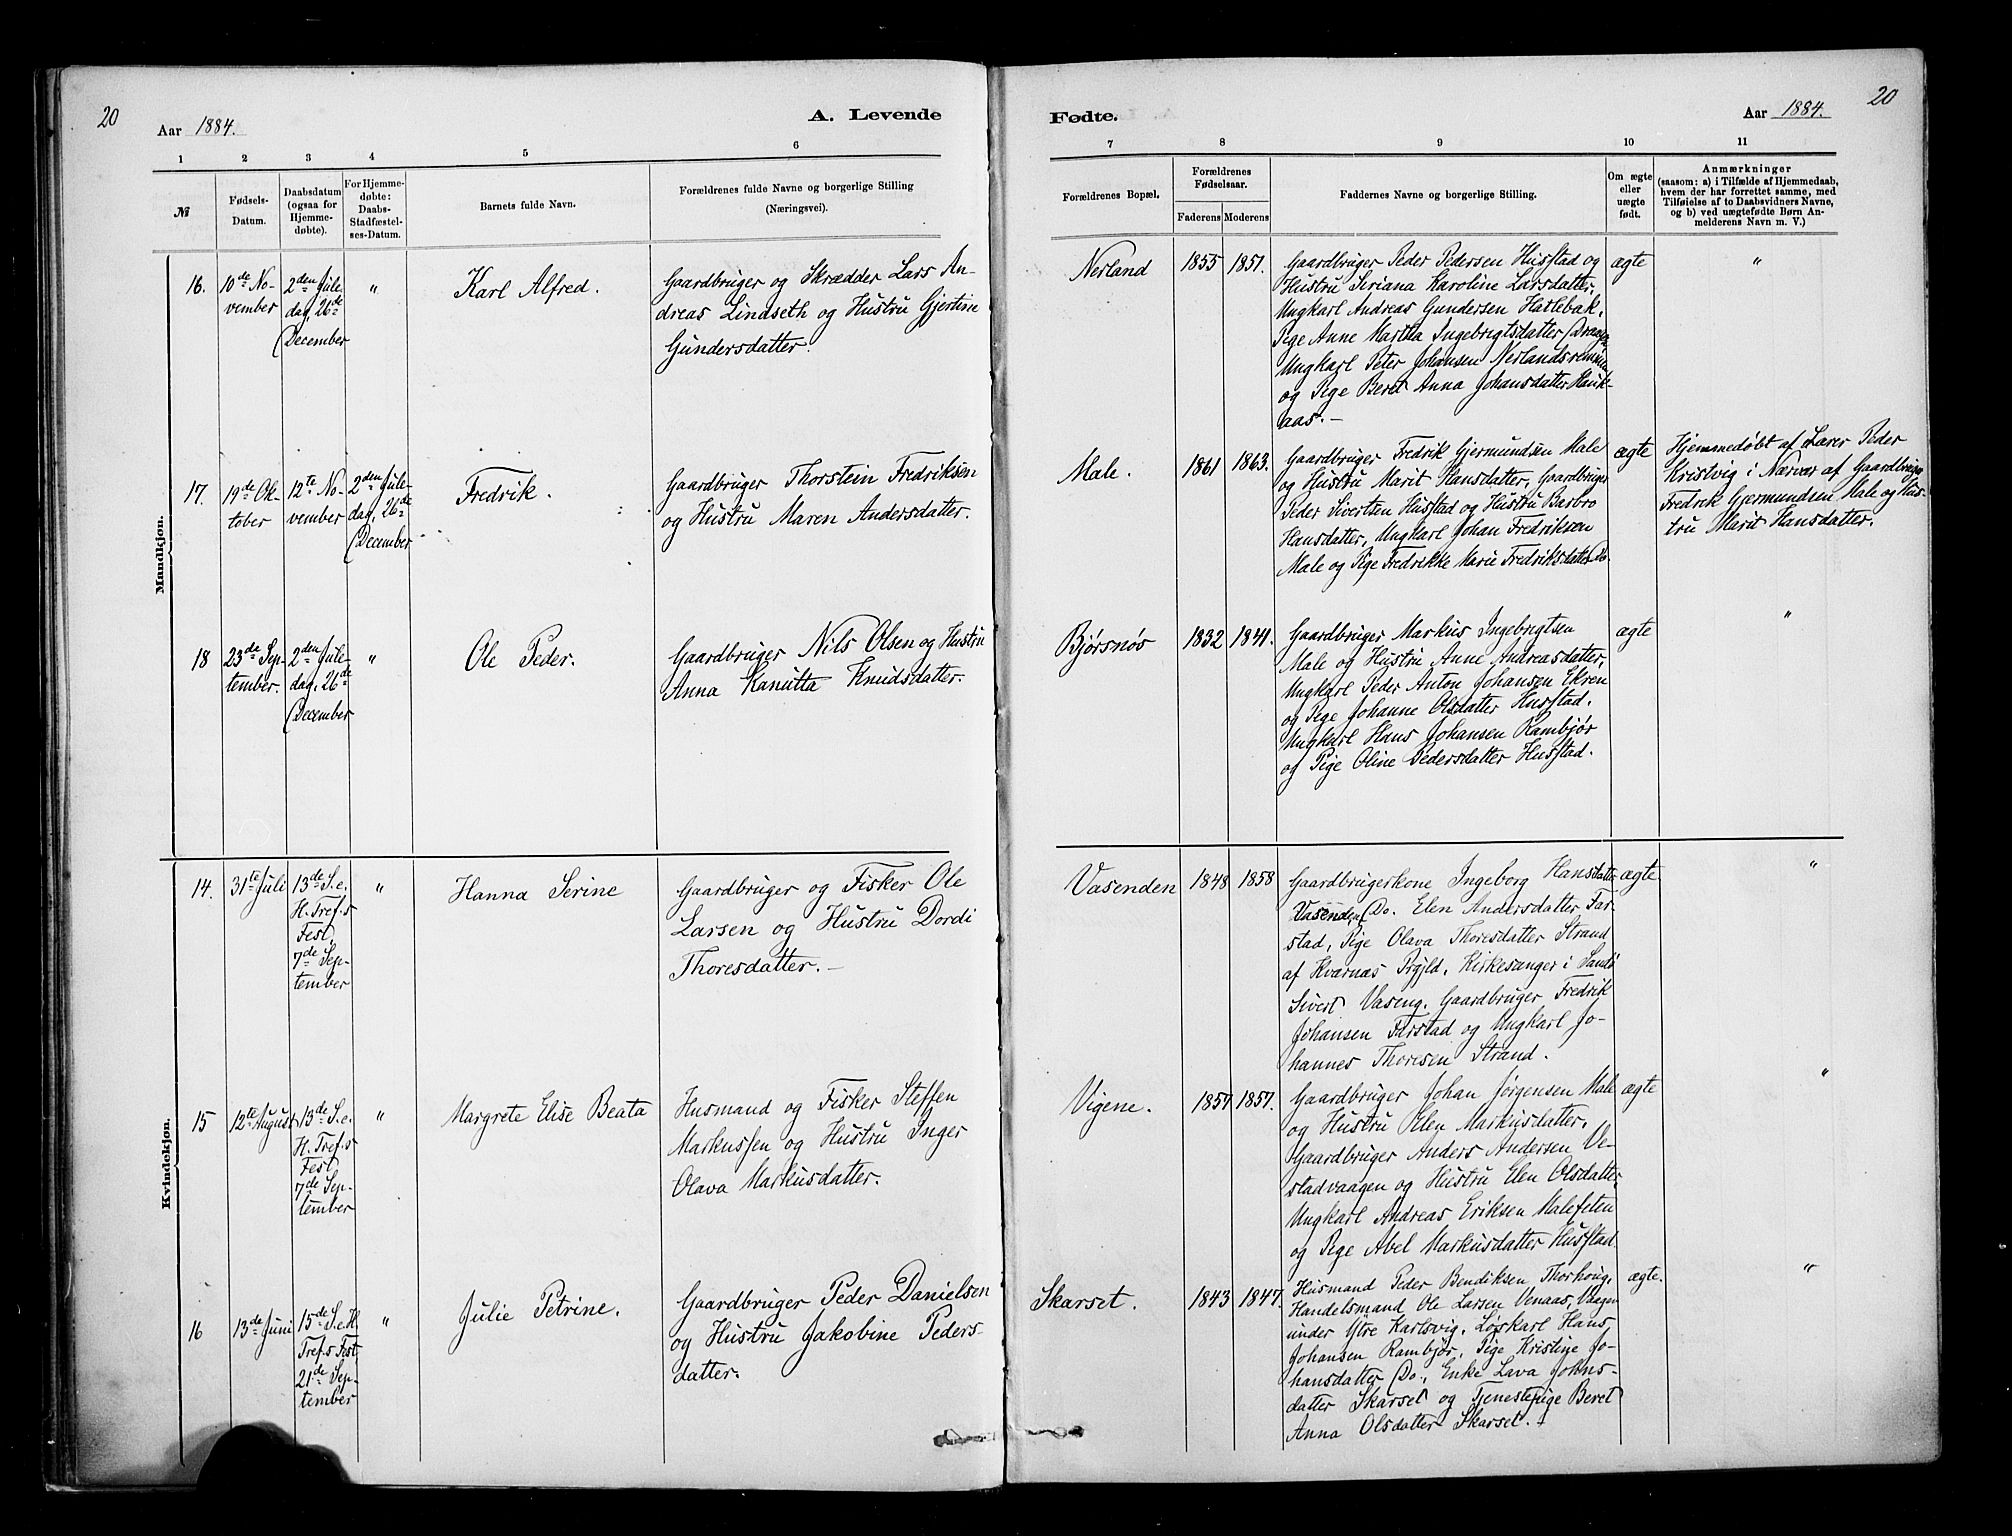 20
Aar 1884.
A. Levende
1 2 3 4 5 6
№
Fødsels-
Datum.
Daabsdatum
(ogsaa for
Hjemme-
døbte).
For Hjemme-
døbte:
Daabs-
Stadfæstel-
ses-Datum.
Barnets fulde Navn.
Forældrenes fulde Navne og borgerlige Stilling
(Næringsvei).
Mandkjøn.
16.
10de No-
vember
2den Jule-
dag, 26de
December
"
Karl Alfred.
Gaardbruger og Skrædder Lars An-
dreas Lindseth og Hustru Gjertine
Gundersdatter.
17.
19de Ok-
tober
12te No-
vember
2den Jule-
dag, 26de
December
Fredrik.
Gaardbruger Thorstein Fredriksen
og Hustru Maren Andersdatter.
18
23de Sep-
tember.
2den Jule-
dag, 26de
December
"
Ole Peder.
Gaardbruger Nils Olsen og Hustru
Anna Kanutta Knudsdatter.
Kvindekjøn.
14.
31te Juli
13de S. e.
H. Tref.s
Fest,
7de Sep-
tember
"
Hanna Serine
Gaardbruger og Fisker Ole
Larsen og Hustru Dordi
Thoresdatter.
15
12te August
13de S. e.
H. Tref.s
Fest,
7de Sep-
tember
"
Margrete Elise Beata
Husmand og Fisker Steffen
Markussen og Hustru Inger
Olava Markusdatter.
16
13de Juni
15de S. e. H.
Tref.s Fest,
21de Sep-
tember
"
Julie Petrine.
Gaardbruger Peder Danielsen
og Hustru Jakobine Peders-
datter.
Fødte.
Aar 1884.
20
7 8 9 10 11
Forældrenes Bopæl.
Forældrenes
Fødselsaar.
Faderens Moderens
Faddernes Navne og borgerlige Stilling.
Om ægte
eller
uægte
født.
Anmærkninger
(saasom: a) i Tilfælde af Hjemmedaab,
hvem der har forrettet samme, med
Tilføielse af to Daabsvidners Navne,
og b) ved uægtefødte Børn An-
melderens Navn m. V.)
Nerland
1855 1851.
Gaardbruger Peder Pedersen Husstad og
Hustru Seriana Karoline Larsdatter,
Ungkarl Andreas Gundersen Hatlebak,
Pige Anne Martha Ingebrigtsdatter Draagen
Ungkarl Peter Johansen Nerlandsremmen
og Pige Beret Anna Johansdatter Hauk-
aas.
ægte
"
Male.
1861 1863.
Gaardbruger Fredrik Gjermundsen Male
og Hustru Marit Hansdatter, Gaardbruger
Peder Sivertsen Hustad og Hustru Barbro
Hansdatter, Ungkarl Johan Fredriksen
Male og Pige Fredrikke Marie Fredriksdatter Do.
ægte
Hjemmedøbt af Lærer Peder
Kristvig i Nærvær af Gaardbruger
Fredrik Gjermundsen Male og Hus-
tru Marit Hansdatter.
Bjørsnøs
1832 1841.
Gaardbruger Markus Ingebrigtsen
Male og Hustru Anne Andreasdatter,
Ungkarl Peder Anton Johansen Ekren
og Pige Johanne Olsdatter Husstad.
Ungkarl Hans Johansen Rambjør
og Pige Oline Pedersdatter Husstad.
ægte
"
Vasenden
1848 1858
Gaardbrugerkone Ingeborg Hansdatter
Vasenden, Do. Elen Andersdatter Far-
stad, Pige Olava Thoresdatter Strand
af Kværnæs Prgjld. Kirkesanger i Sandø
Sivert Vaseng. Gaardbruger Fredrik
Johansen Farstad og Ungkarl Jo-
hannes Thoresen Strand.
ægte
"
Vigene.
1857 1857.
Gaardbruger Johan Jørgensen Male
og Hustru Elen Markusdatter,
Gaardbruger Anders Andersen Ve-
stadvaagen og Hustru Elen Olsdatter,
Ungkarl Andreas Eriksen Malefeten
og Pige Abel Markusdatter Husstad
ægte
"
Skarset.
1843 1847.
Husmand Peder Bendiksen Thorhoug,
Handelsmand Ole Larsen Venaas, Vaagen
under Ytre Karlsvig, Løskarl Hans
Johansen Rambjør, Pige Kristine Jo-
hansdatter Do., Enke Lava Johns-
datter Skarset og Tjenestepige Beret
Anna Olsdatter Skarset.
ægte.
"